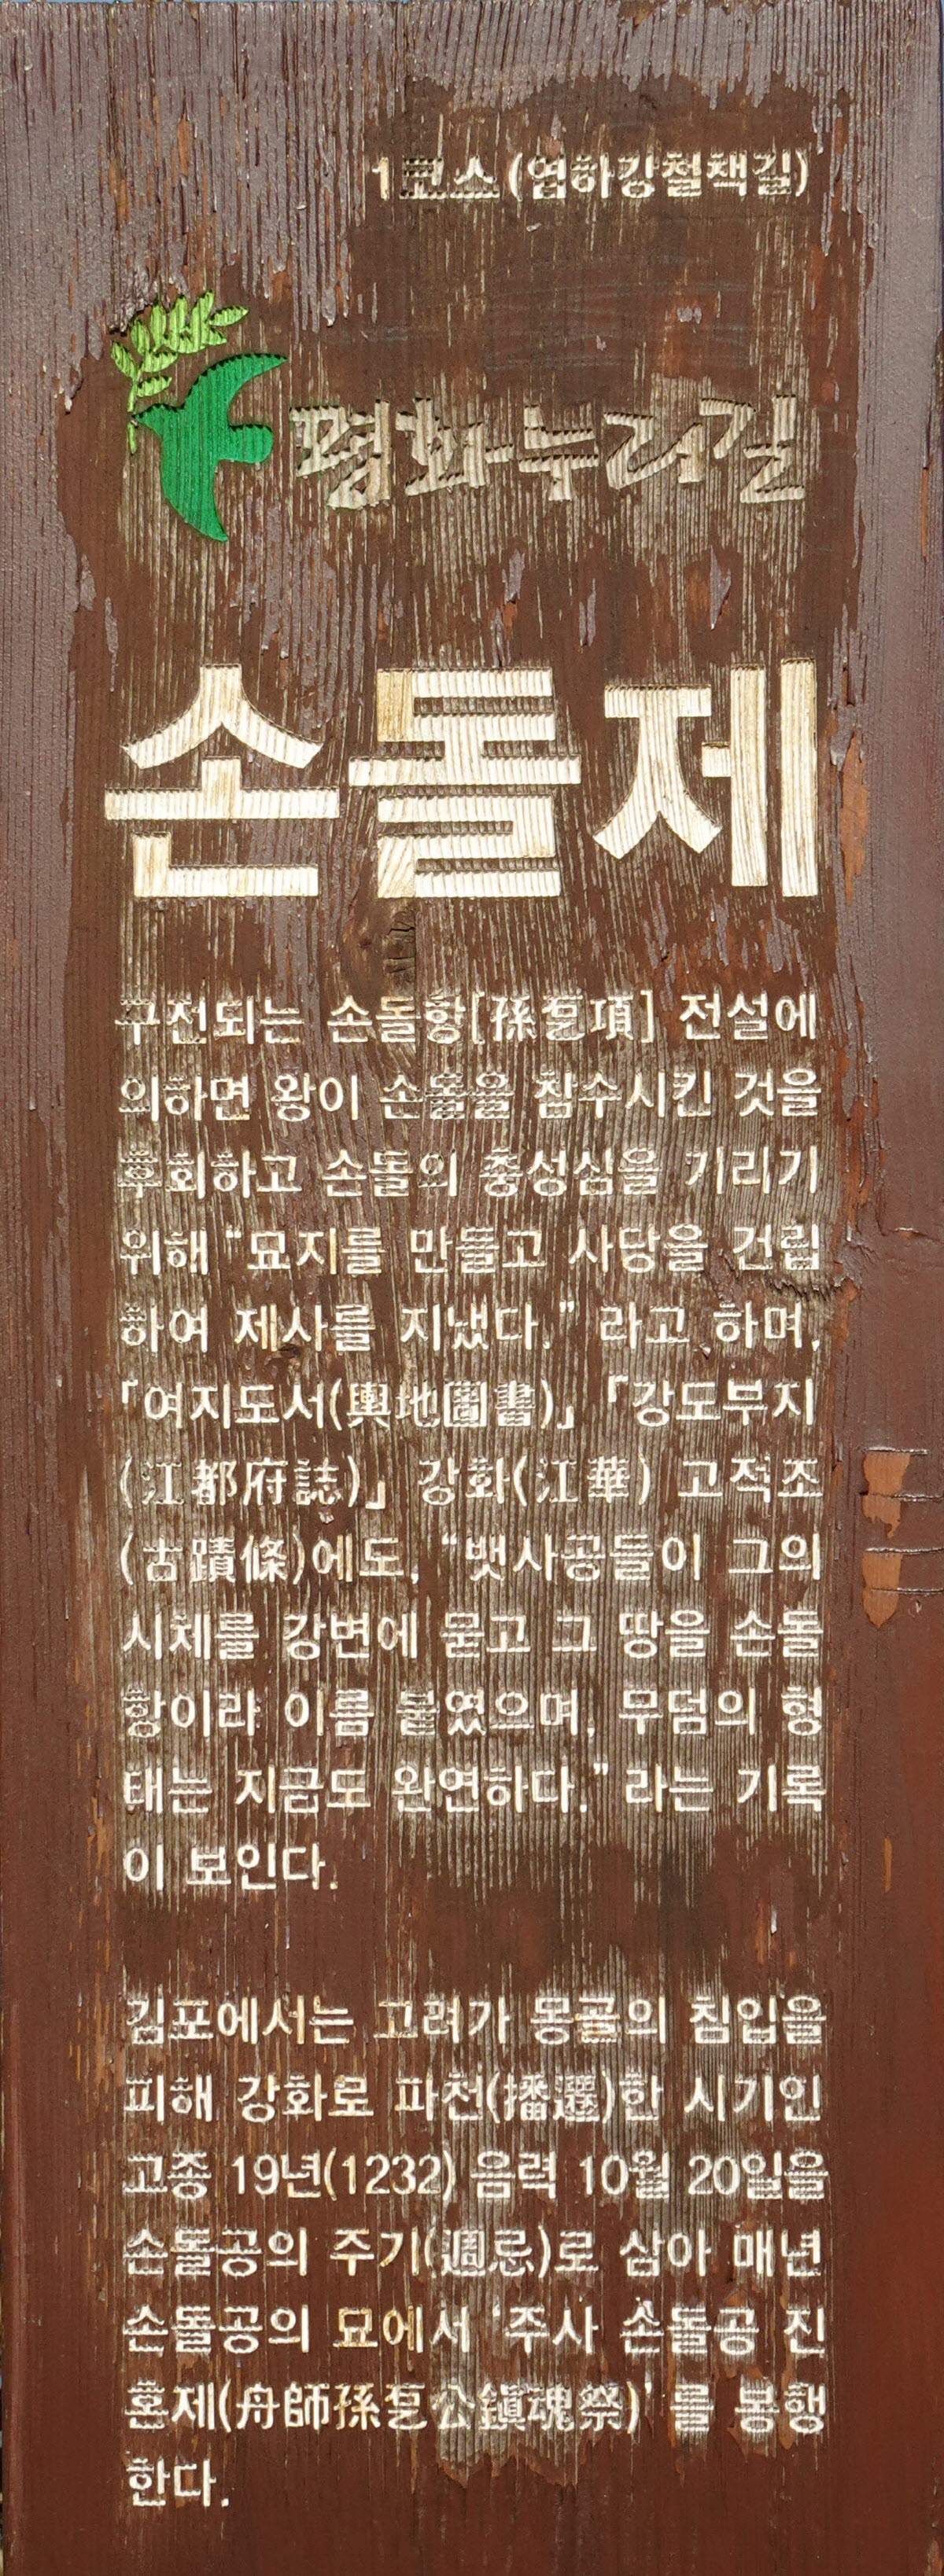 1코스(염하강철책길)
평화누리길
손돌제
구전되는 손돌항[孫乭項] 전설에
의하면 왕이 손돌을 참수시킨 것을
후회하고 손돌의 충성심을 기리기
위해 “묘지를 만들고 사당을 건립
하여 제사를 지냈다.” 라고 하며,
「여지도서(輿地圖書)」 「강도부지
(江都府誌)」 강화(江華) 고적조
(古蹟條)에도, “뱃사공들이 그의
시체를 강변에 묻고 그 땅을 손돌
항이라 이름 붙였으며, 무덤의 형
태는 지금도 완연하다.” 라는 기록
이 보인다.
김포에서는 고려가 몽골의 침입을
피해 강화로 파천(播遷)한 시기인
고종 19년(1232) 음력 10월 20일을
손돌공의 주기(週忌)로 삼아 매년
손돌공의 묘에서 ‘주사 손돌공 진
혼제(舟師孫乭公鎭魂祭)’ 를 봉행
한다.